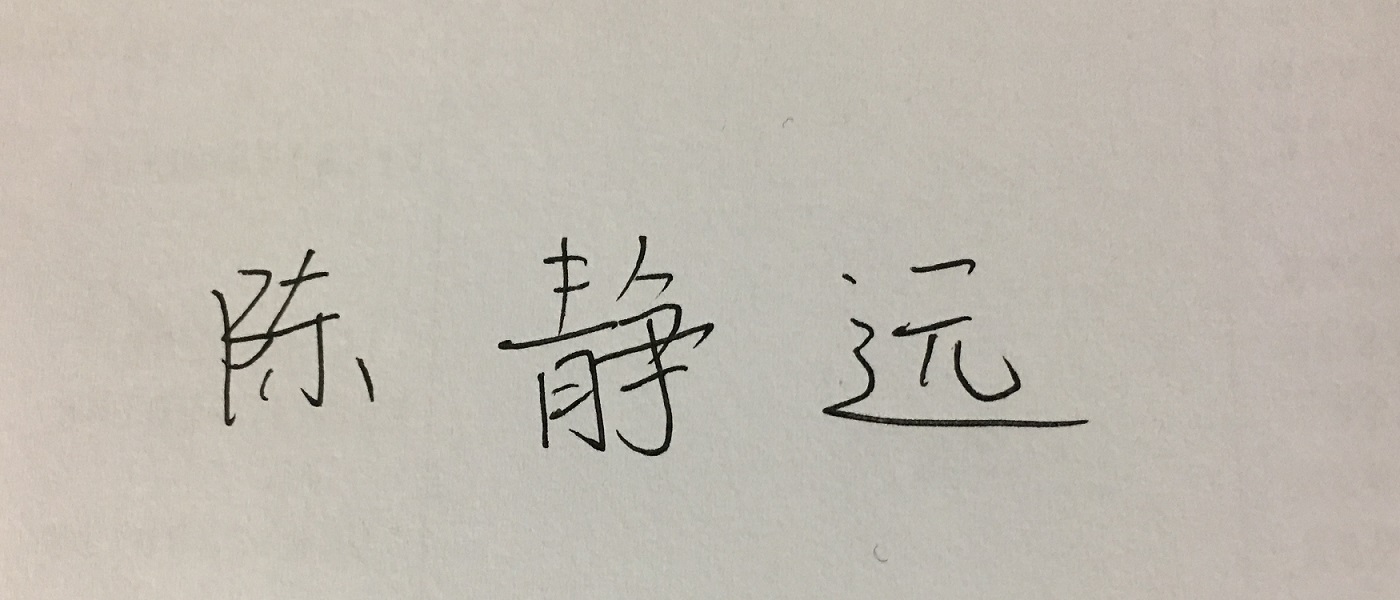 陈静远